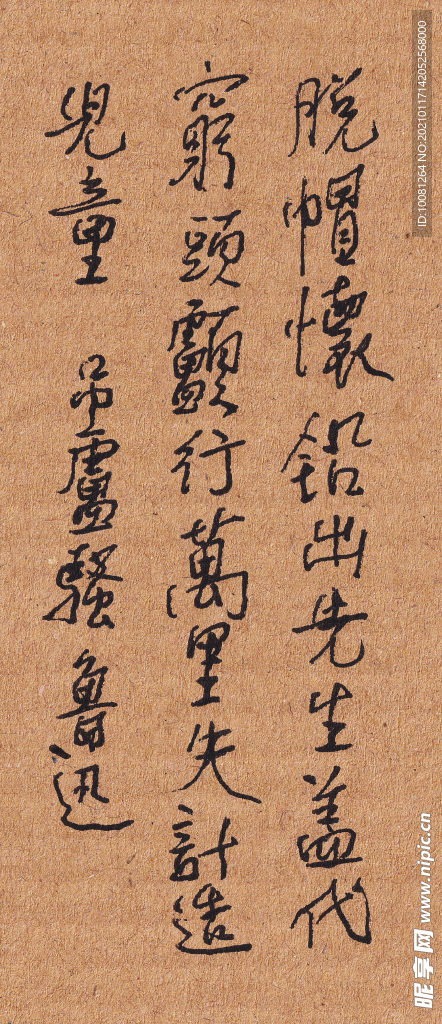 脫帽懷鉛出先生盖代
窮頭顱行萬里失計造
兒童 吊盧騷 魯迅
ID:10081264 NO:20210117142052568000
昵享网 www.nipic.cn